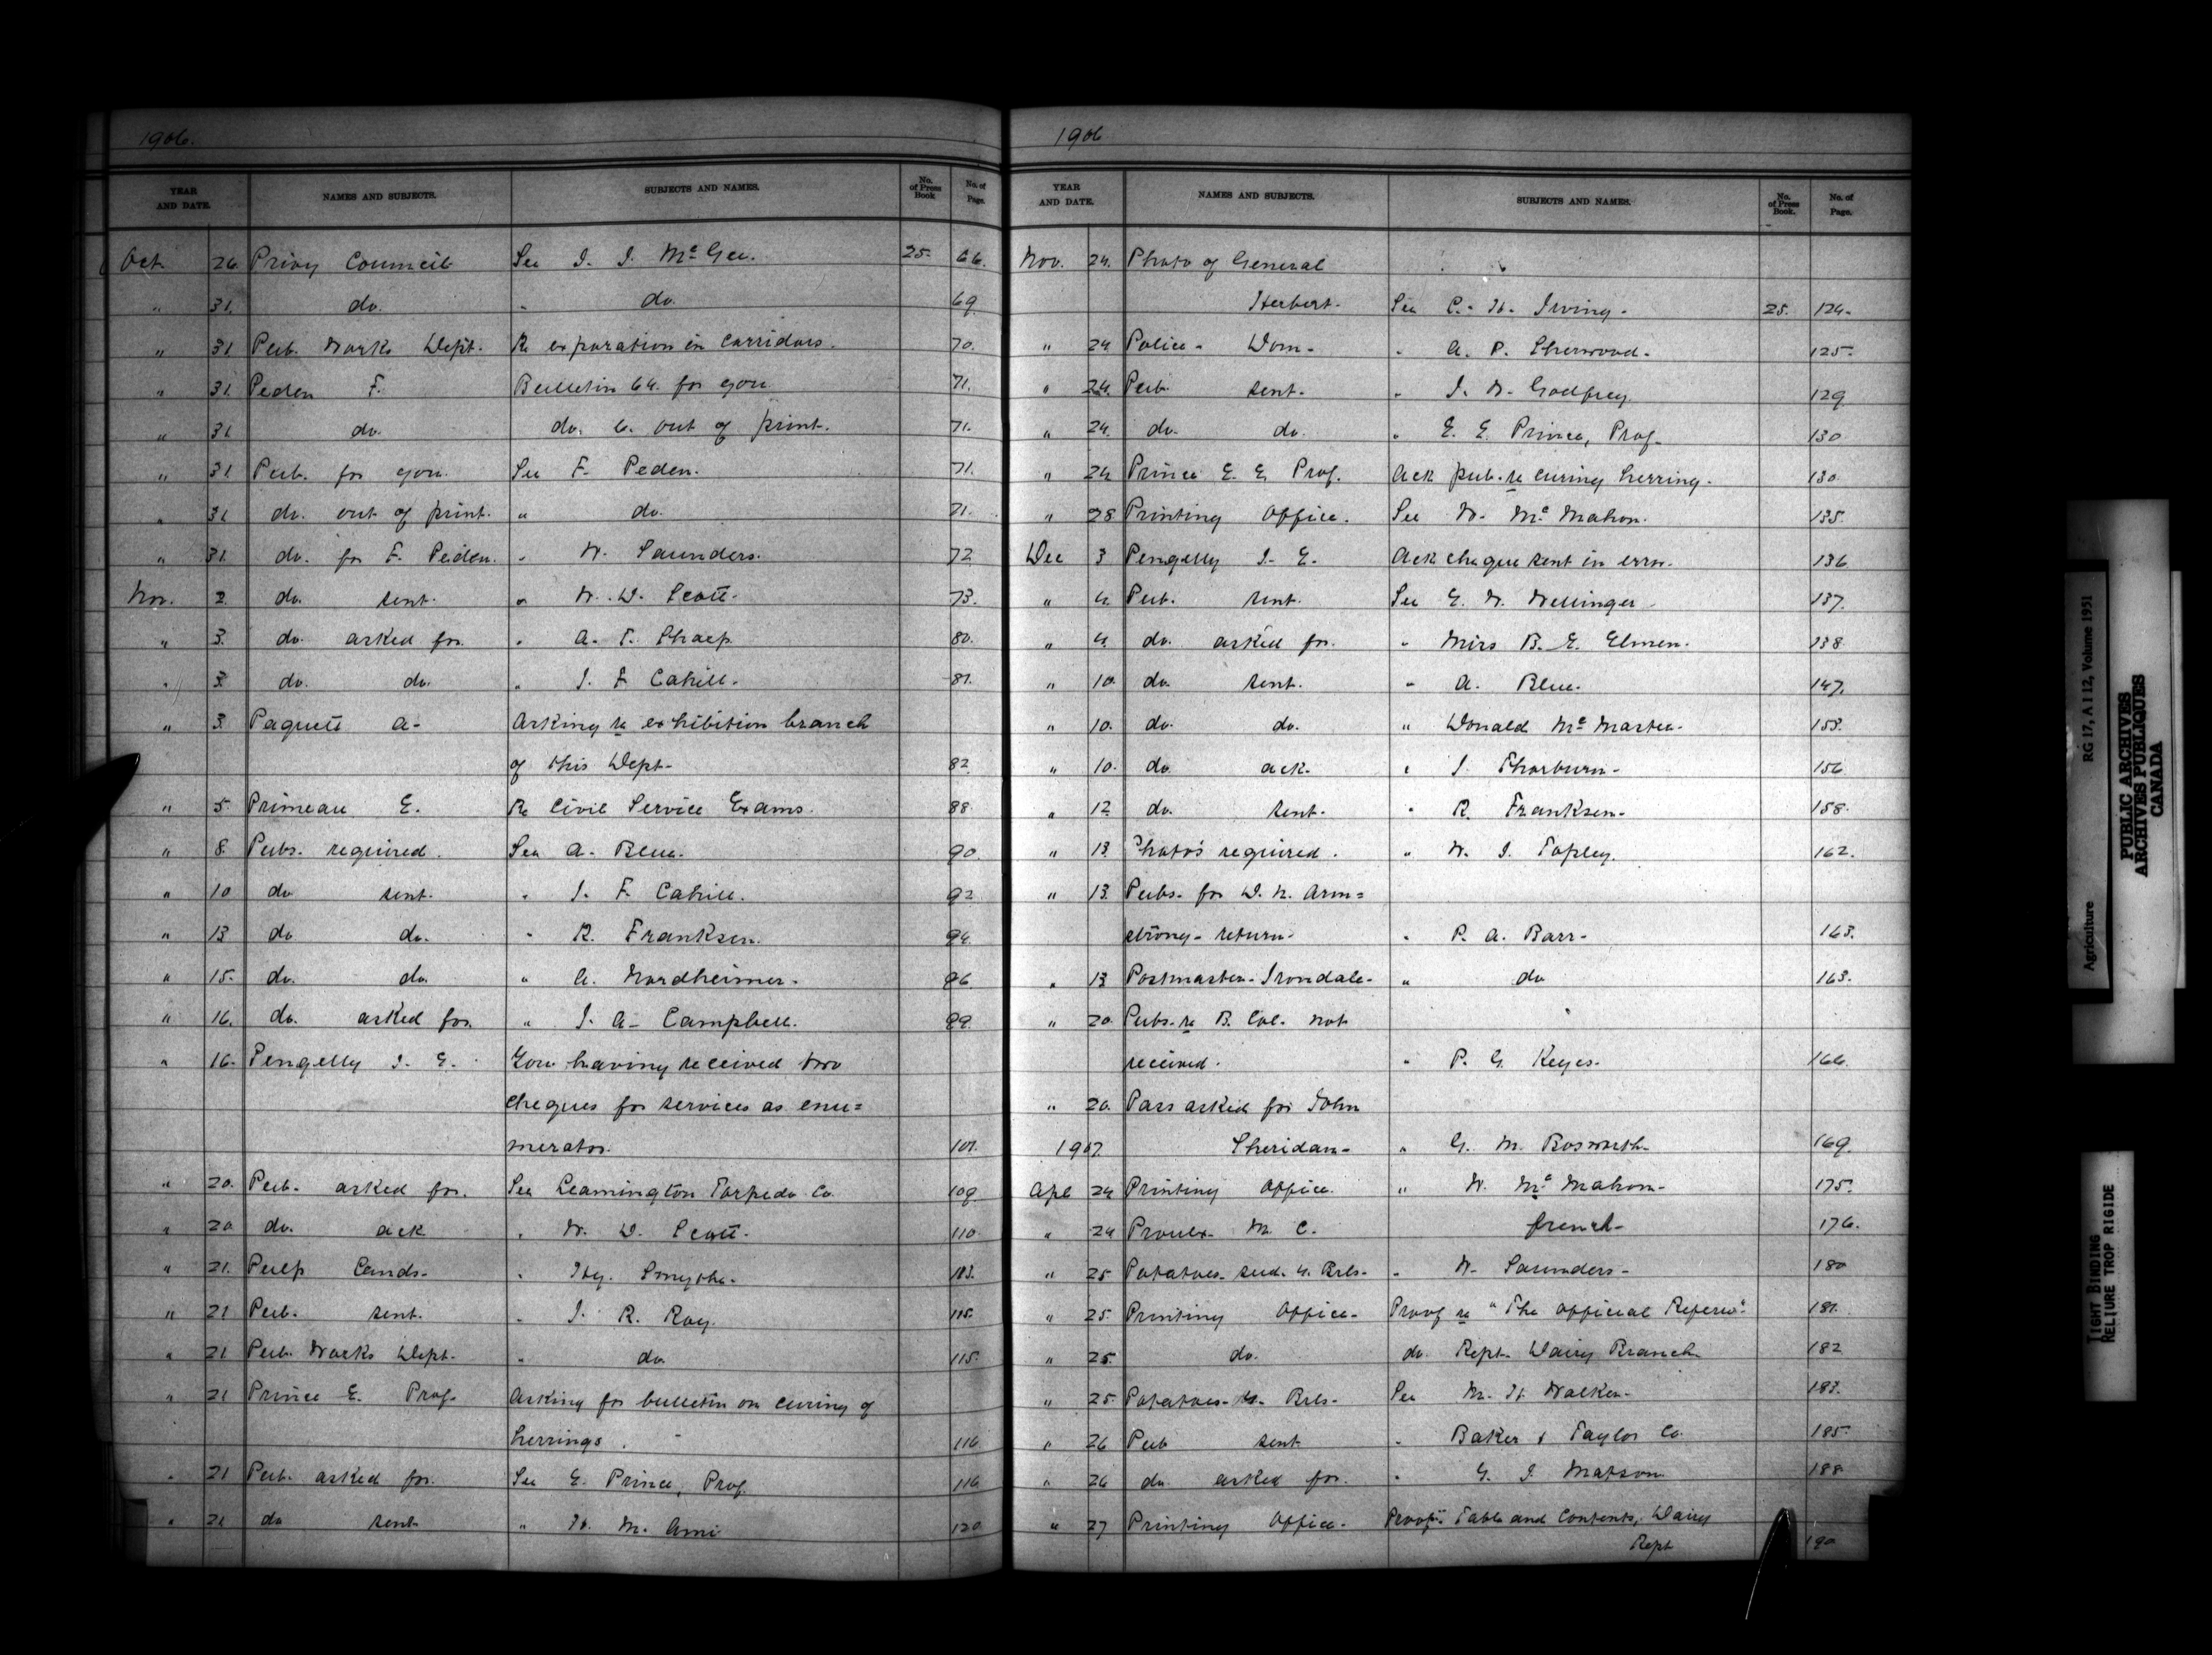 1906.
YEAR AND DATE. NAMES AND SUBJECTS. SUBJECTS AND NAMES. No. of Press Book No. of Page.
Oct. 26. Privy Council See J. J. McGee. 25. 66.
" 31. do. " do. 69
" 31 Pub. Works Dept. Re exporation in corridors. 70.
" 31. Peden F. Bulletin 64. for you 71.
" 31 do. do. 6. out of print. 71.
" 31 Pub. for you. See F. Peden. 71.
" 31 do. out of print. " do. 71.
" 31. do. for F. Peden. " W. Saunders. 72
Nov. 2. do. sent. " W. D. Scott. 73.
" 3. do. asked for. " A. T. Sharp. 80.
" 3 do. do. " J. F. Cahill. 81.
" 3 Paquet A- Asking re exhibition branch
of this Dept- 82
" 5. Primeau E. Re Civil Service Exams. 88
" 8. Pubs. required. See A. Blue. 90.
" 10 do sent. " J. F. Cahill. 92
" 13 do do. " R. Franksen. 94.
" 15. do. do. " A. Nordheimer. 96.
" 16. do. asked for. " J. A. Campbell. 99.
" 16. Pengelly J. E. You having received two
cheques for services as enu=
merator. 101.
" 20. Pub. asked for. See Leamington Torpedo Co. 109
" 20 do. ack. " W. D. Scott. 110.
" 21. Pulp Cands- " Hy. Smythe. 113.
" 21 Pub. sent. " J. R. Roy. 115.
" 21 Pub. Works Dept. " do. 115.
" 21 Prince E. Prof. Asking for bulletin on curing of
herrings. 116
" 21 Pub. asked for. See E. Prince, Prof. 116
" 21 do sent. " H. M. Ami 120
1906
YEAR AND DATE. NAMES AND SUBJECTS. SUBJECTS AND NAMES. No. of Press Book. No. of Page.
Nov. 24. Photo of General
Herbert. See C. H. Irving. 25. 124.
" 24 Police- Dom- " A. P. Sherwood. 125.
" 24. Pub. sent. " J. W. Godfrey. 129
" 24. do. do. " E. E. Prince, Prof. 130
" 24 Prince E. E. Prof. Ack pub. re curing herring. 130
" 28 Printing Office. See W. McMahon. 135.
Dec 3 Pengelly J. E. Ack cheque sent in error. 136
" 4. Pub. sent. See E. W. Wellinger 137.
" 4. do. asked for. " Miss B. E. Elmen. 138
" 10 do. sent. " A. Blue. 147.
" 10. do. do. " Donald McMaster. 153.
" 10. do. ack. " J. Thorburn. 156
" 12 do. sent. " R. Franksen. 158.
" 13. Photos required. " W. J. Topley. 162.
" 13 Pubs. for D. N. Arm=
strong- return. " P. A. Barr- 163.
" 13 Postmaster- Irondale- " do 163.
" 20. Pubs. re B. Col. not
received. " P. G. Keyes. 166.
" 20. Pass asked for John
1907 Sheridan- " G. M. Bosworth 169.
Apl 24 Printing Office. " W. McMahon. 175.
" 24 Proulx. M. C. french- 176.
" 25 Potatoes- sud. 4. Brls- " W. Saunders- 180
" 25. Printing Office- Proof re "The Official Referee". 181.
" 25. do. do. Rept. Dairy Branch. 182
" 25. Potatoes- 4. Brls- See M. H. Walker. 183.
" 26 Pub sent " Baker & Taylor Co. 185.
" 26 do. asked for. " G. J. Matson. 188
" 27 Printing Office. Proof Table and Contents, Dairy
Rept 190
Agriculture RG 17, A I 12, Volume 1951
PUBLIC ARCHIVES
ARCHIVES PUBLIQUES
CANADA
TIGHT BINDING
RELIURE TROP RIGIDE